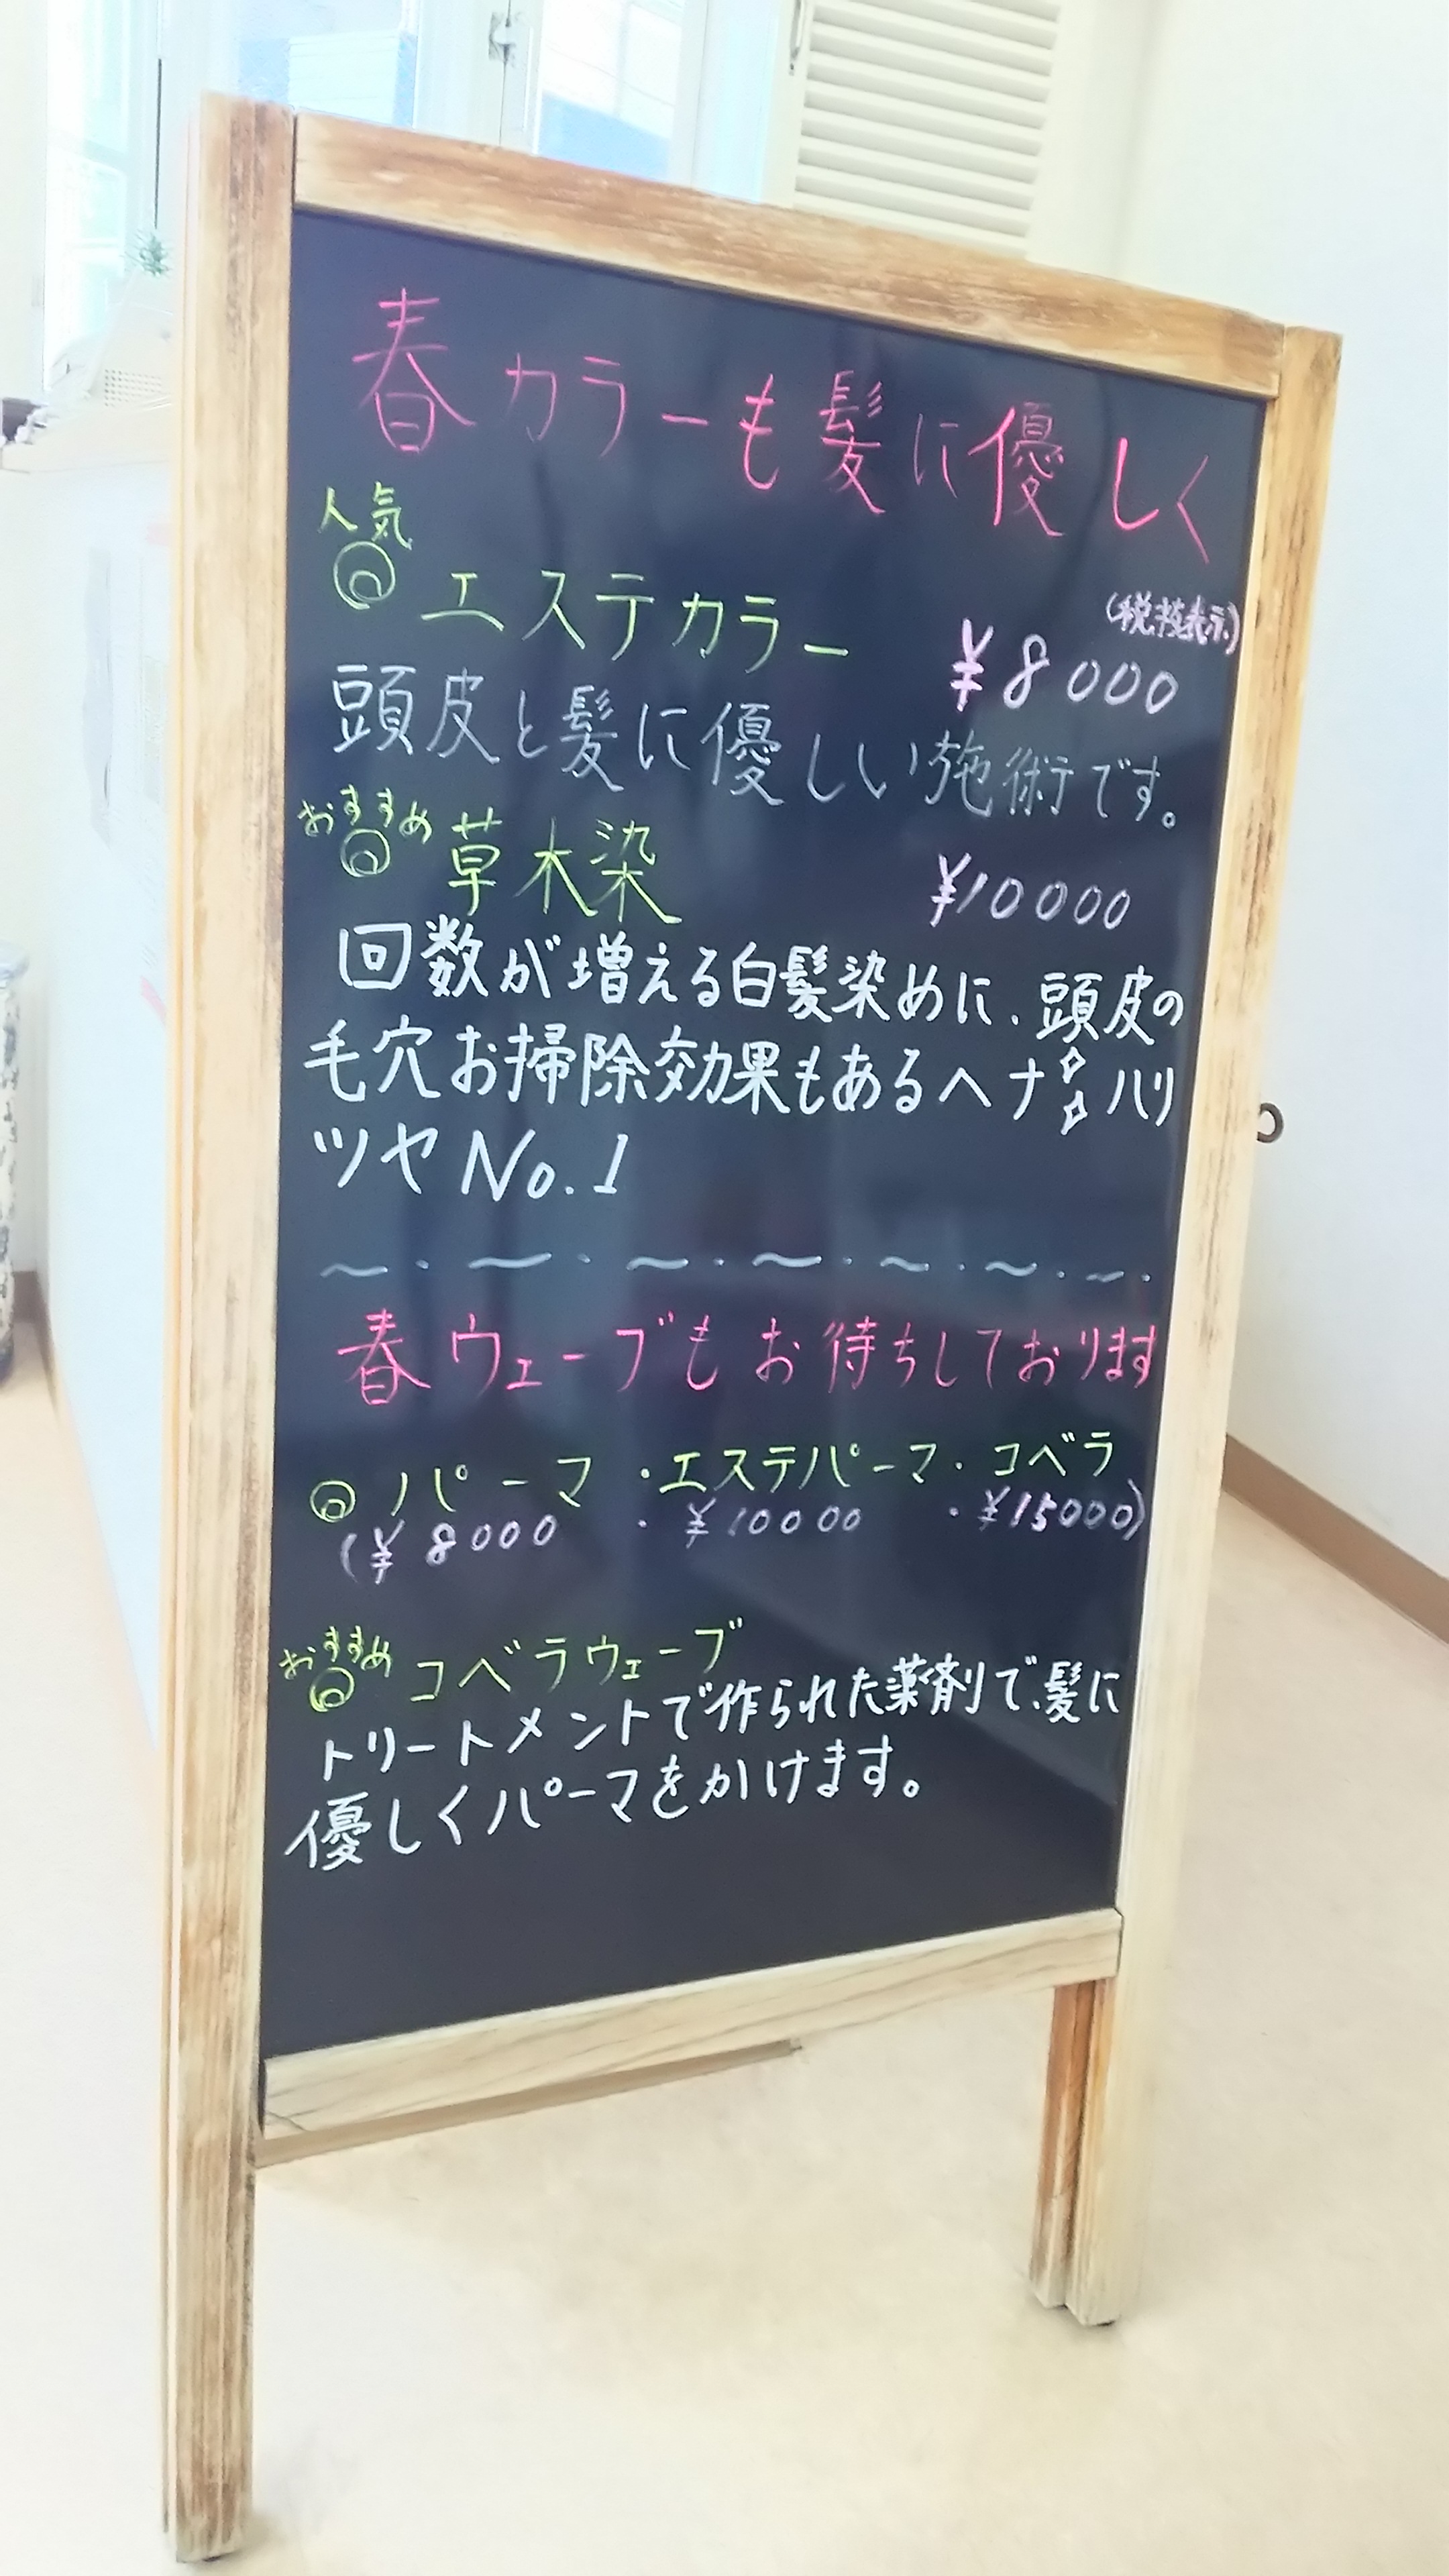 春カラーも髪に優しく
人気
◎エステカラー
(税抜表示)
¥8000
頭皮と髪に優しい施術です。
おすすめ
◎草木染 ¥10000
回数が増える白髪染めに、頭皮の
毛穴お掃除効果もあるヘナ ハリ
ツヤNo.1
〜・〜・〜・〜・〜・〜・〜・
春ウェーブもお待ちしております
◎パーマ・エステパーマ・コベラ
(¥8000・¥10000・¥15000)
おすすめ
◎コベラウェーブ
トリートメントで作られた薬剤で、髪に
優しくパーマをかけます。